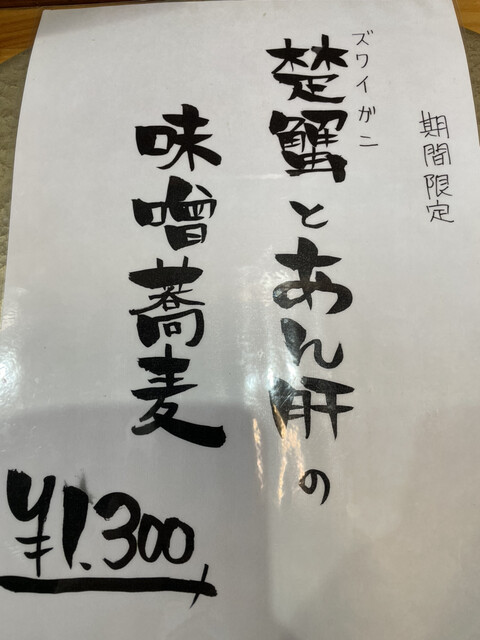 期間限定
ズワイガニ
楚蟹とあん肝の
味噌蕎麦
¥1.300